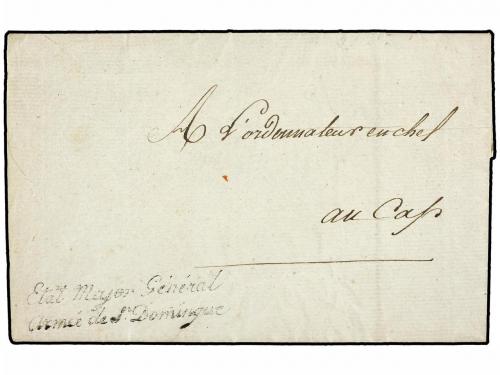 A L'ordonnateur en chef
au Cap
Etat Major Général
Armée de St. Domingue